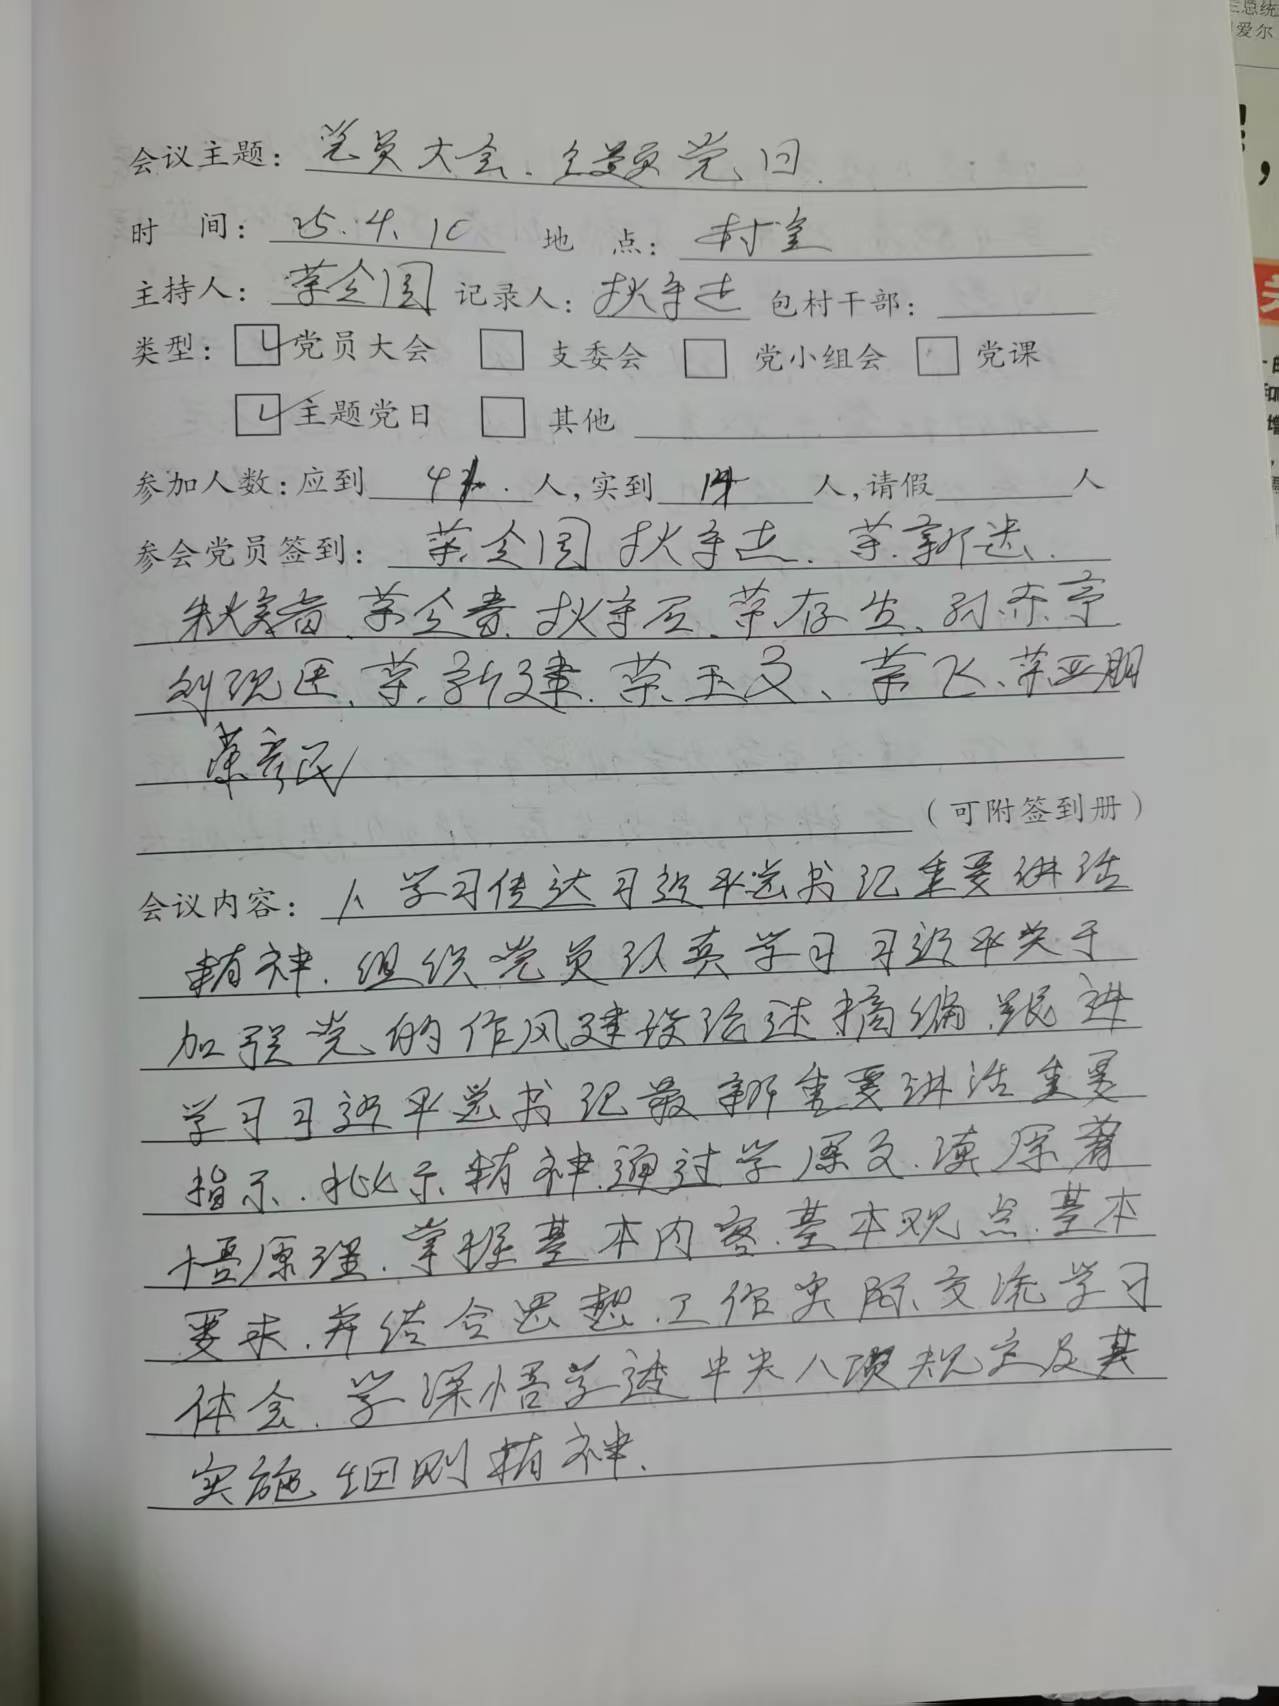 会议主题：党员大会、主题党日.
时 间：25.4.10 地 点：村室
主持人：荣全国 记录人：狄守志 包村干部：
类型：党员大会 支委会 党小组会 党课
主题党日 其他
参加人数：应到 人，实到 人，请假 人
参会党员签到：荣全国 狄守志、荣新
荣全 狄守 、荣存生、孙亦亭
刘现 、荣新建、荣玉文、荣飞、荣亚朋
荣彦民
（可附签到册）
会议内容：1、学习传达习近平总书记重要讲话
精神.组织党员认真学习习近平关于
加强党的作风建设论述摘编.跟进
学习习近平总书记最新重要讲话重要
指示.批示精神.通过学原文.读原著
悟原理.掌握基本内容.基本观点.基本
要求.并结合思想.工作实际.交流学习
体会.学深悟学透中央八项规定及其
实施细则精神.